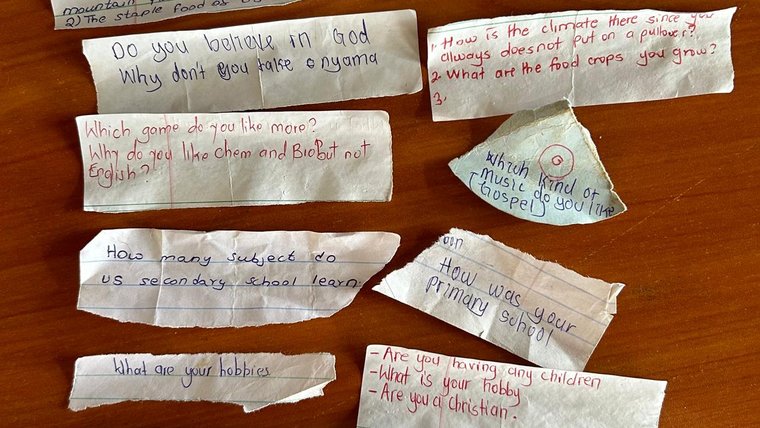 mountain
2) The staple food of
Do you believe in God
Why don't you raise onyama
1. How is the climate there since you
always doesnot put on a pullover?
2. What are the food crops you grow?
3.
Which game do you like more?
Why do you like Chem and Bio But not
English?
Which kind of
music do you like
(Gospel)
How many subject do
us secondary school learn.
How was your
primary school
What are your hobbies
- Are you having any children
- What is your hobby
- Are you a Christian?